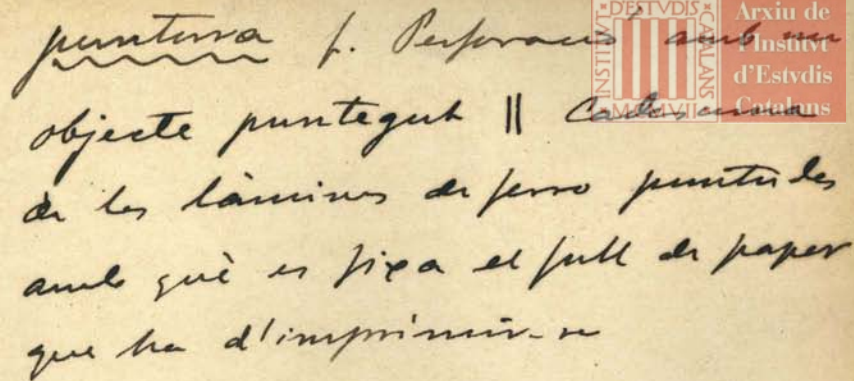 puntura f. Perforació amb un
objecte punxegut || Cadascuna
de les làmines de ferro puntudes
amb què es fixa el full de paper
que ha d'imprimir-se
INSTITVT D'ESTVDIS CATALANS
MCMVII
Arxiu de
l'Institvt
d'Estvdis
Catalans